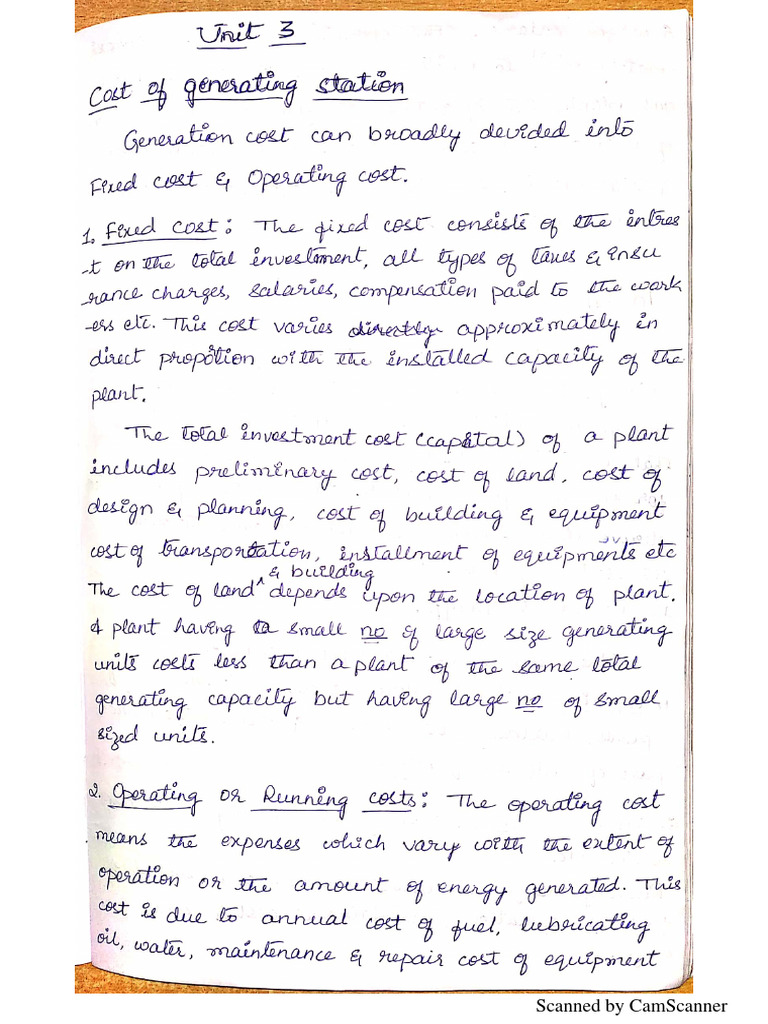 Unit 3
Cost of generating station
Generation cost can broadly devided into
Fixed cost & Operating cost.
1. Fixed cost: The fixed cost consists of the intres
-t on the total investment, all types of taxes & insu
-rance charges, salaries, compensation paid to the work
-ers etc. This cost varies directly approximately in
direct propotion with the installed capacity of the
plant.
The total investment cost (capital) of a plant
includes preliminary cost, cost of land, cost of
design & planning, cost of building & equipment
cost of transportation, installment of equipments etc
& building
The cost of land ^ depends upon the location of plant.
A plant having a small no of large size generating
units costs less than a plant of the same total
generating capacity but having large no of small
sized units.
2. Operating or Running costs: The operating cost
means the expenses which vary with the extent of
operation or the amount of energy generated. This
cost is due to annual cost of fuel, lubricating
oil, water, maintenance & repair cost of equipment
Scanned by CamScanner